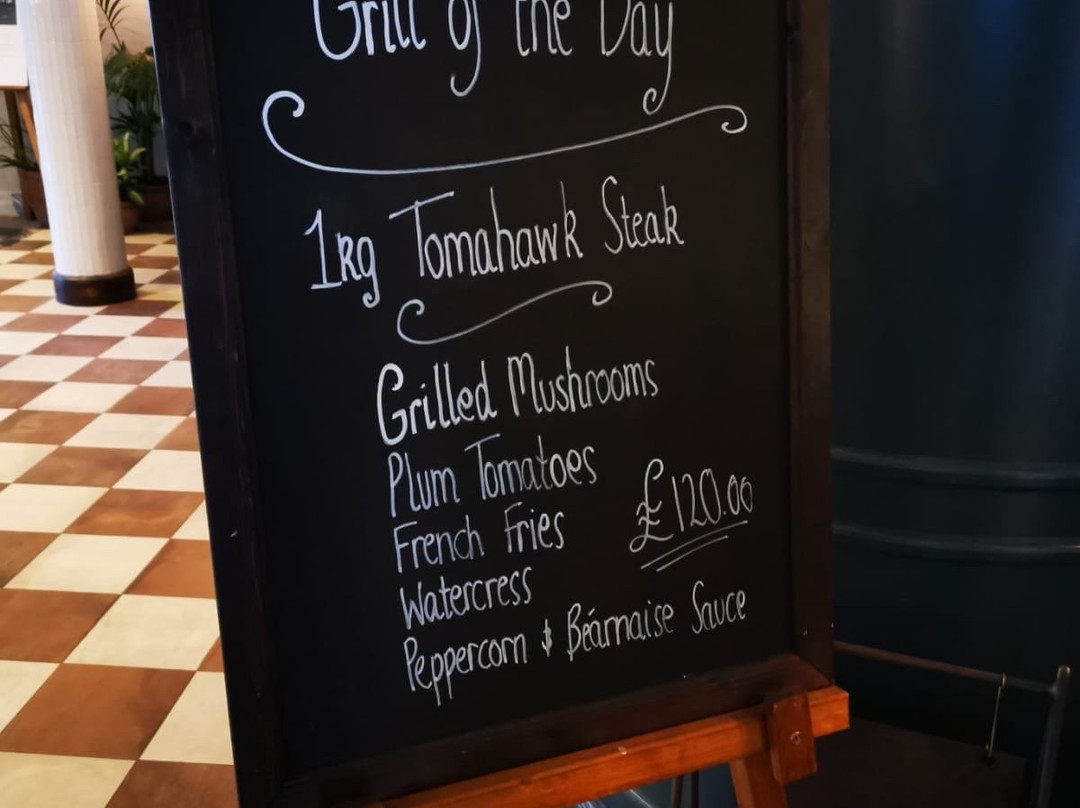 Grill of the Day
1kg Tomahawk Steak
Grilled Mushrooms
Plum Tomatoes
French Fries
£120.00
Watercress
Peppercorn & Béarnaise Sauce